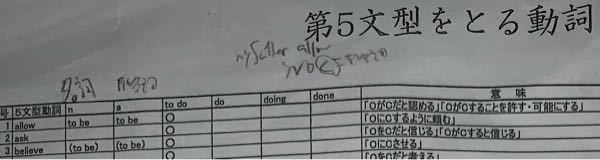 第5文型をとる動詞
allow
名詞
号 5文型動詞 n a to do do doing done 意味
1 allow to be to be ○ 「OがCだと認める」「OがCすることを許す・可能にする」
2 ask ○ 「OにCするように頼む」
3 believe (to be) (to be) ○ 「OがCだと信じる」「OがCすると信じる」
「OにCさせる」
「OをCだと考える」